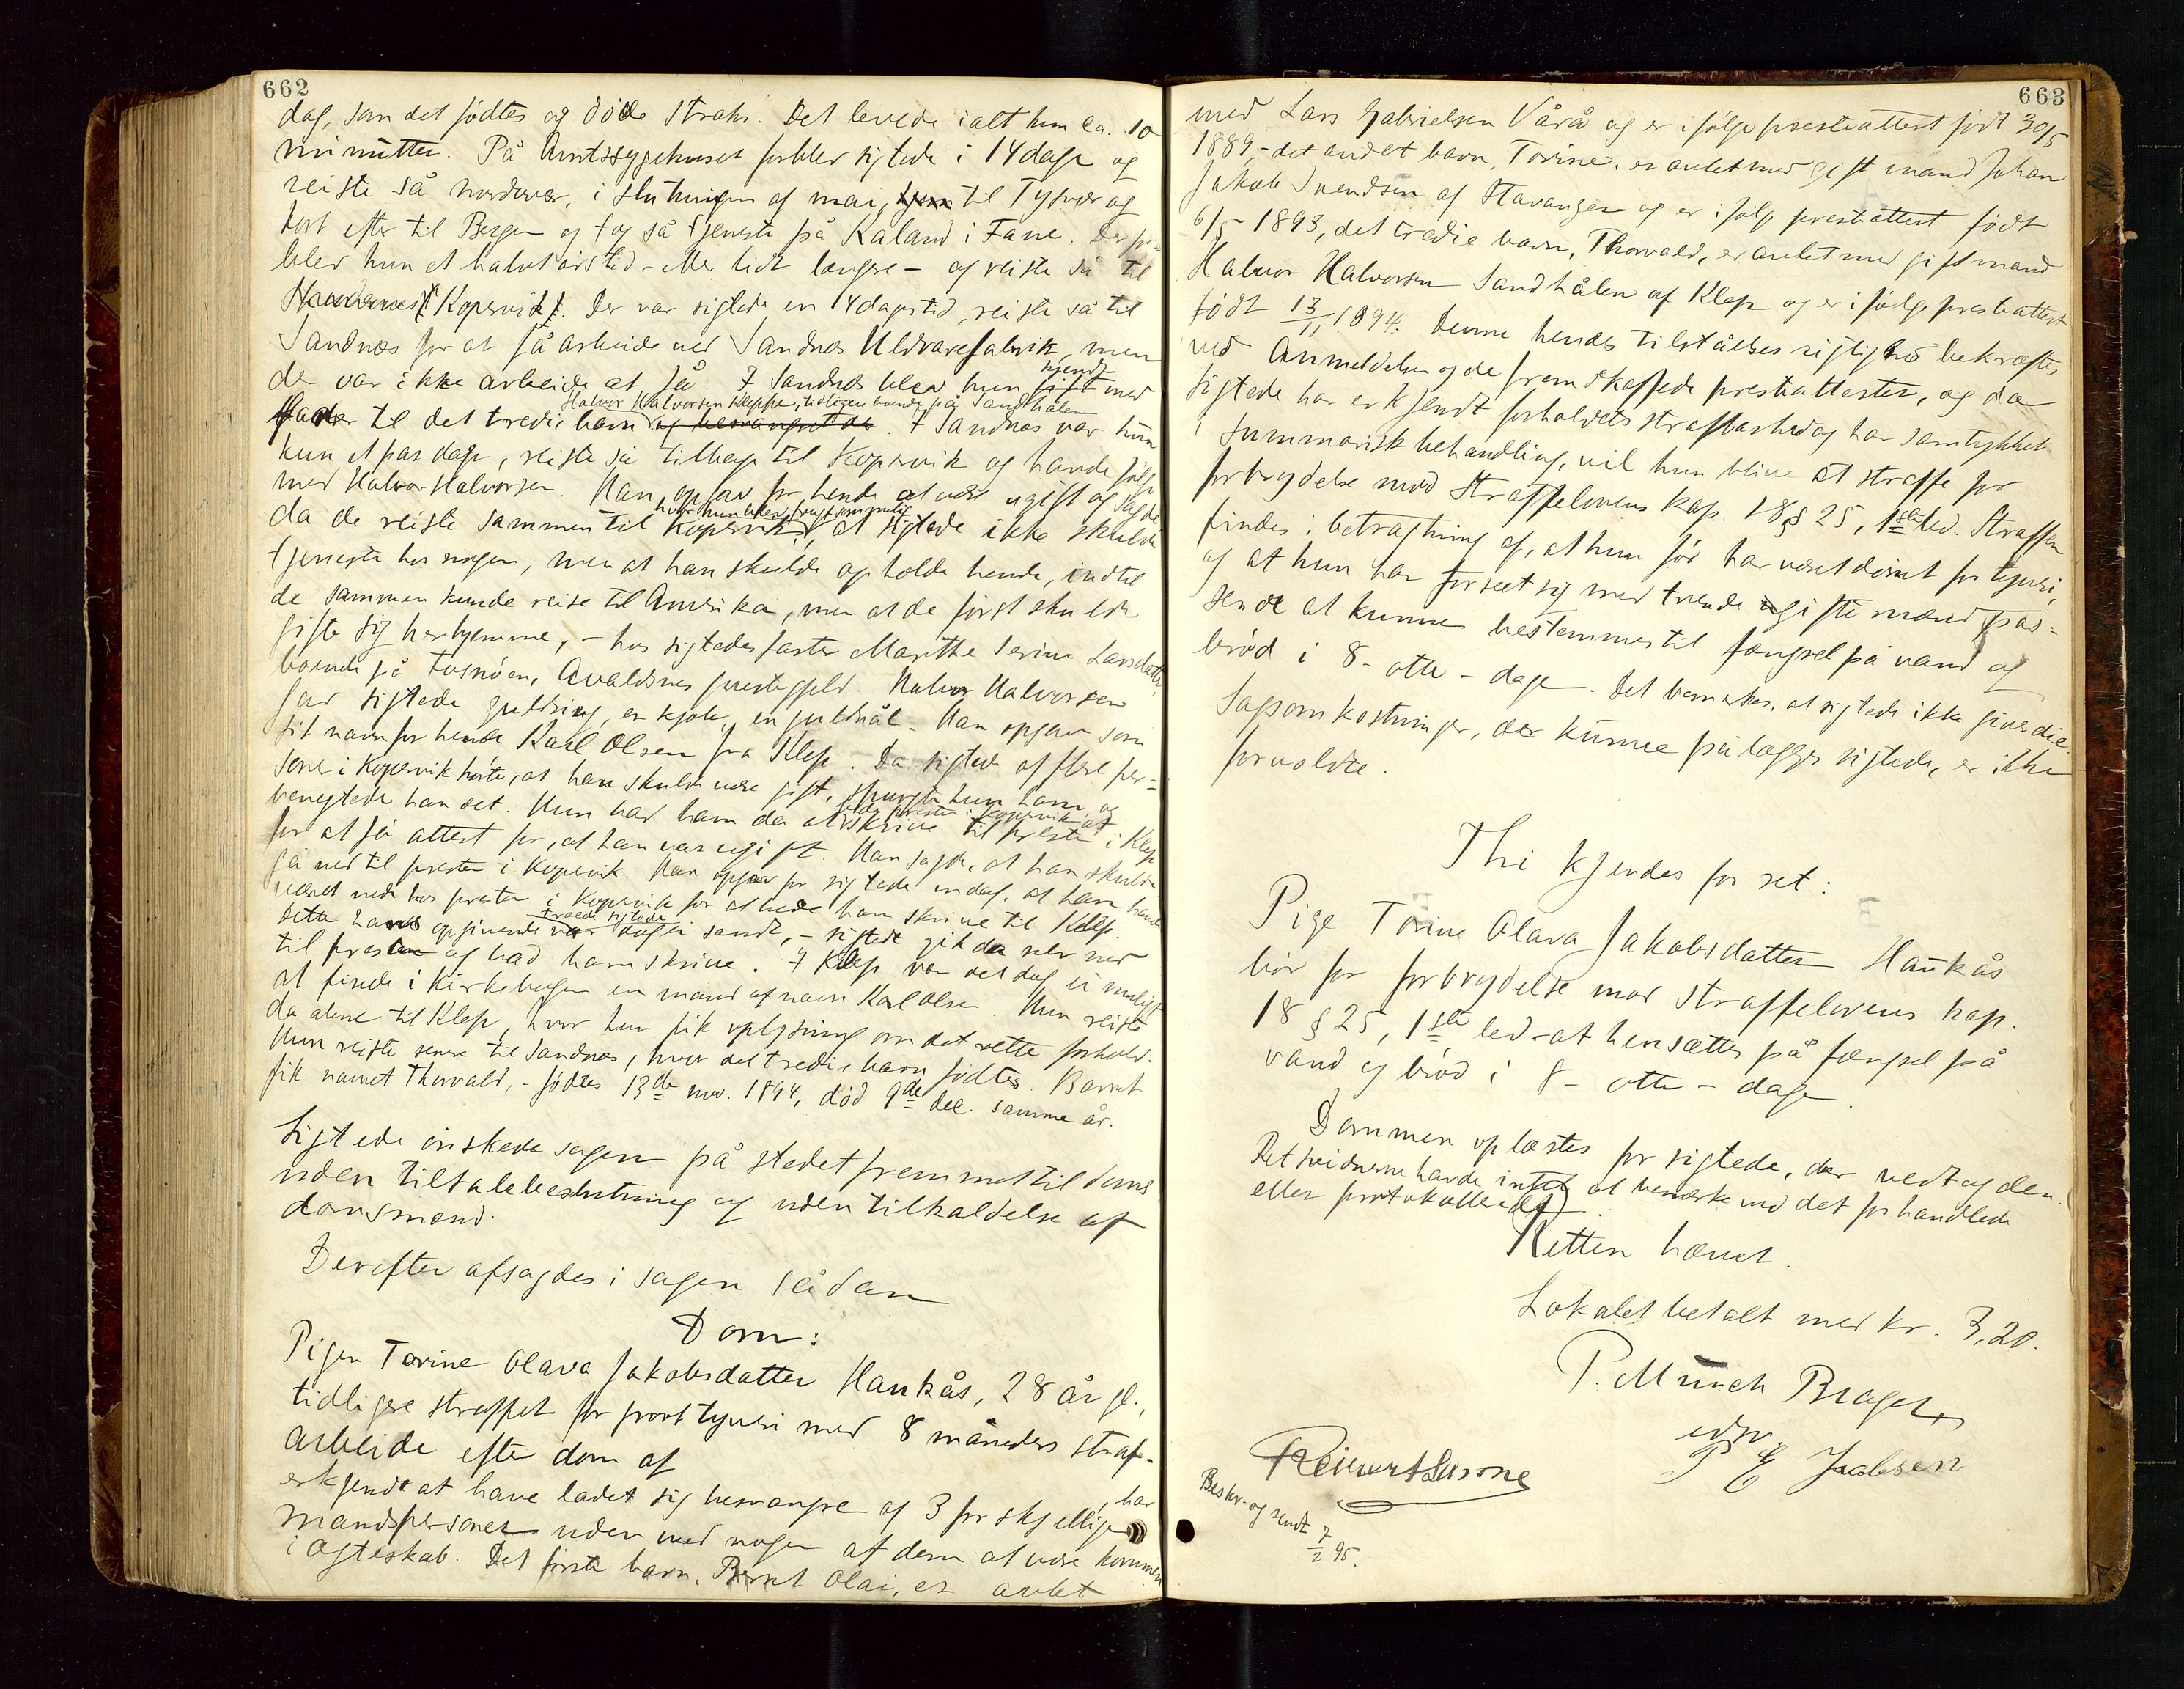 662
dag, som det födtes og döde strax. Det levede ialt kun ca. 10
minutter. På Amtssygehuset forblev sigtede i 14 dage og
reiste så nordover, i slutningen af mai, til Tysvær og
kort efter til Bergen og tog så tjeneste på Kaland i Fane. Der for-
blev hun et halvt årstid - eller lidt længere - og reiste så til
Kopervik. Der var sigtede en 14 dagstid, reiste så til
Sandnæs for at få arbeide ved Sandnæs Uldvarefabrik, men
der var ikke arbeide at få. I Sandnæs blev hun kjendt med
Halvor Halvorsen Kleppe, tidligere boende på Sandhålen
Fader til det tredie barn og besvangret af. I Sandnæs var hun
kun et par dage, reiste så tilbage til Kopervik og havde fölge
med Halvor Halvorsen. Han opgav for hende at være ugift og sagde
hvor hun blev frugtsommelig
da de reiste sammen til Kopervik, at sigtede ikke skulde
tjeneste hos nogen, men at han skulde opholde hende, indtil
de sammen kunde reise til Amerika, men at de först skulde
gifte sig herhjemme, - hos sigtedes faster Marthe Serine Larsdatter,
boende på Fosnöen, Avaldsnes prestegjeld. Halvor Halvorsen
gav sigtede guldring, en kjole, en guldnål. Han opgav som
sit navn for hende Karl Olsen fra Klep. Da sigtede af flere per-
soner i Kopervik hörte, at han skulde være gift, spurgte hun ham, og
benegtede han det. Hun bad ham da at skrive til presten i Klep
for at få attest for, at han var ugift. Han sagde, at han skulde
gå ned til presten i Kopervik. Han opgav for sigtede en dag, at han havde
været nede hos presten i Kopervik for at bede ham skrive til Klep.
Dette hans opgivende troede sigtede ei sandt, - sigtede gik da selv ned
til presten og bad ham skrive. I Klep var det dog ei muligt
at finde i Kirkebogen en mand af navn Karl Olsen. Hun reiste
da alene til Klep, hvor hun fik oplysning om det rette forhold.
Hun reiste senere til Sandnæs, hvor det tredie barn födtes. Barnet
fik navnet Thorvald, - födtes 13de nov. 1894, död 9de dec. samme år.
Sigtede önskede sagen på stedet fremmet til doms
uden tiltalebeslutning og uden tilkaldelse af
domsmænd.
Derefter afsagdes i sagen sådan
Dom:
Pigen Torine Olava Jakobsdatter Haukås, 28 år gl.,
tidligere straffet for grovt tyveri med 8 måneders straf-
arbeide efter dom af
har
erkjendt at have ladet sig besvangre af 3 forskjellige
mandspersoner uden med nogen af dem at være kommen
i ægteskab. Det förste barn, Bernt Olai, er avlet
663
med Lars Gabrielsen Vårå og er ifölge presteattest födt 30/5
1889, - det andet barn, Torine, er avlet med gift mand Johan
Jakob Svendsen af Stavanger og er ifölge presteattest födt
6/5 1893, det tredie barn, Thorvald, er avlet med gift mand
Halvor Halvorsen Sandhålen af Klep og er ifölge presteattest
födt 13/11 1894. Denne hendes tilståelses rigtighed bekræftes
ved Anmeldelsen og de fremskaffede presteattester, og da
sigtede har erkjendt forholdets strafbarhed og har samtykket
i summarisk behandling, vil hun blive at straffe for
forbrydelse mod Straffelovens kap. 18 § 25, 1ste led. Straffen
findes i betragtning af, at hun för har været dömt for tyveri,
og at hun har forseet sig med tvende gifte mænd pas-
sende at kunne bestemmes til fængsel på vand og
bröd i 8 - otte - dage. Det bemærkes, at sigtede ikke giver die.
Sagsomkostninger, der kunne pålægges sigtede, er ikke
forvoldte.
Thi kjendes for ret:
Pige Torine Olava Jakobsdatter Haukås
bör for forbrydelse mod straffelovens kap.
18 § 25, 1ste led - at hensættes på fængsel på
vand og bröd i 8 - otte - dage.
Dommen oplæstes for sigtede, der vedtog den.
Retsvidnerne havde intet at bemærke ved det forhandlede
eller protokollerede.
Retten hævet.
Lokalet betalt med kr. 3,20.
P. Münch Brager
edsv.
P E Jacobsen
Beskr. og sendt 7/2 95.